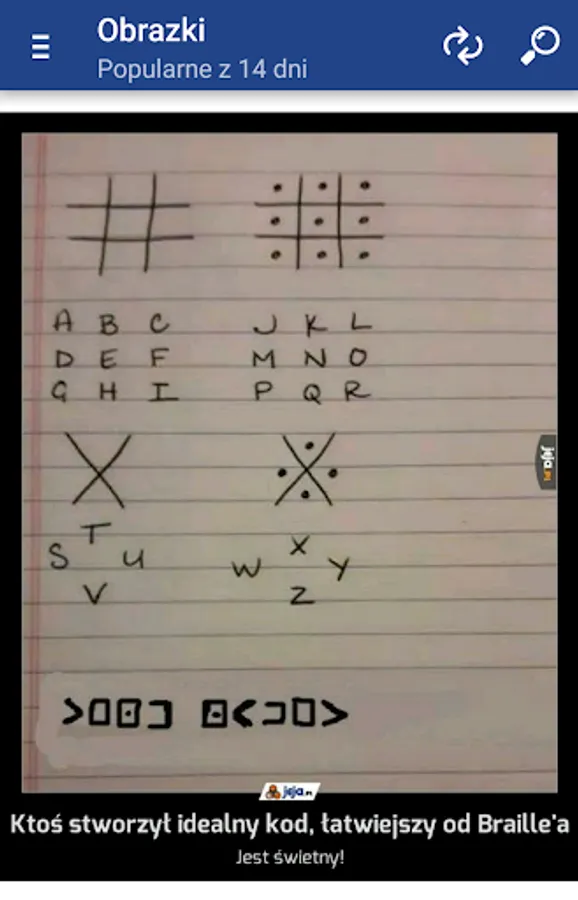 Obrazki
Popularne z 14 dni
A B C J K L
D E F M N O
G H I P Q R
T X
S U W Y
V Z
jeja.pl
jeja.pl
Ktoś stworzył idealny kod, łatwiejszy od Braille'a
Jest świetny!